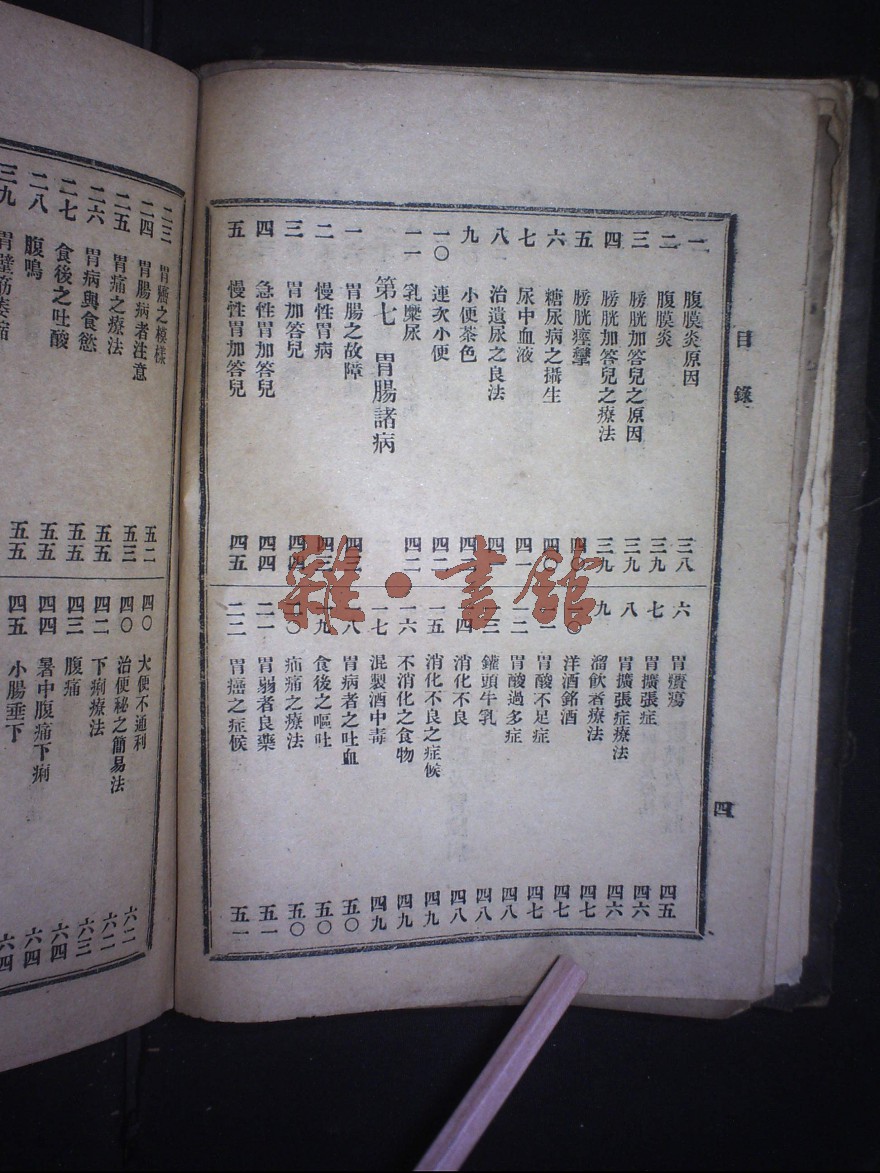 目錄
一 腹膜炎原因 三八
二 腹膜炎 三九
三 膀胱加答兒之原因 三九
四 膀胱加答兒之療法 三九
五 膀胱痙攣 四〇
六 糖尿病之攝生 四〇
七 尿中血液 四一
八 治遺尿之良法 四一
九 小便茶色 四二
一〇 連次小便 四二
一一 乳糜尿 四二
第七 胃腸諸病
一 胃腸之故障 四三
二 慢性胃病 四三
三 胃加答兒 四四
四 急性胃加答兒 四四
五 慢性胃加答兒 四五
六 胃潰瘍 四五
七 胃擴張症 四六
八 胃擴張症療法 四六
九 溜飲者療法 四七
一〇 洋酒銘酒 四七
一一 胃酸不足症 四七
一二 胃酸過多症 四八
一三 鑵頭牛乳 四八
一四 消化不良 四八
一五 消化不良之症候 四九
一六 不消化之食物 四九
一七 混製酒中毒 四九
一八 胃病者之吐血 五〇
一九 食後之嘔吐 五〇
二〇 疝痛之療法 五〇
二一 胃弱者良藥 五一
二二 胃癌之症候 五一
四
二三 胃癌之模樣 五二
二四 胃腸病者注意 五三
二五 胃痛之療法 五五
二六 胃病與食慾 五五
二七 食後之吐酸 五五
二八 腹鳴 五五
三九 胃壁筋萎縮
四〇 大便不通利 六二
四〇 治便秘之簡易法 六二
四二 下痢療法 六三
四三 腹痛 六四
四四 暑中腹痛下痢 六四
四五 小腸垂下 六四
雜·書館